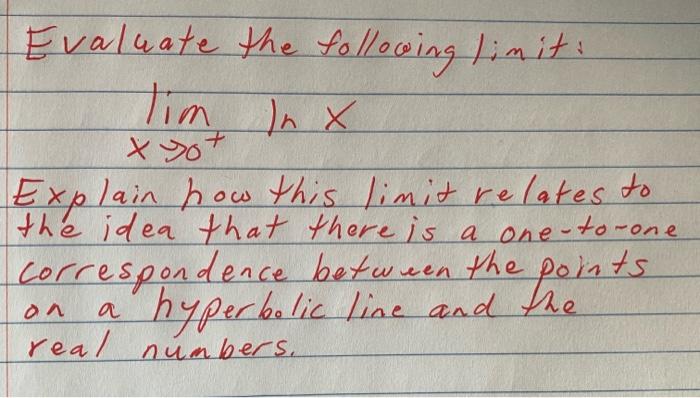 Evaluate the following limit:
lim ln x
x→0⁺
Explain how this limit relates to
the idea that there is a one-to-one
correspondence between the points
on a hyperbolic line and the
real numbers.